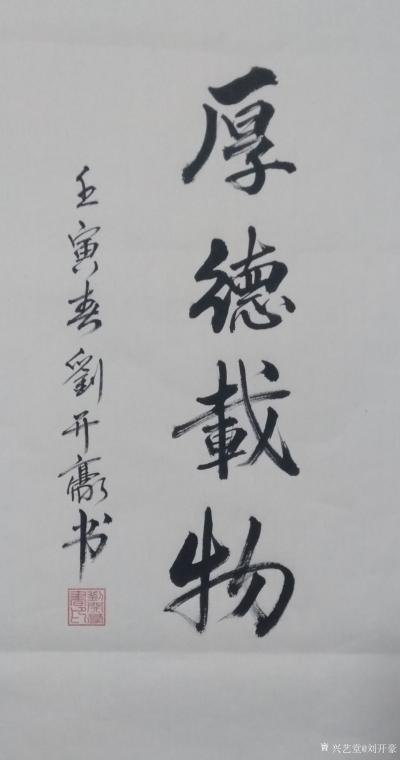 厚德載物
壬寅春劉开豪书
兴艺堂@刘开豪